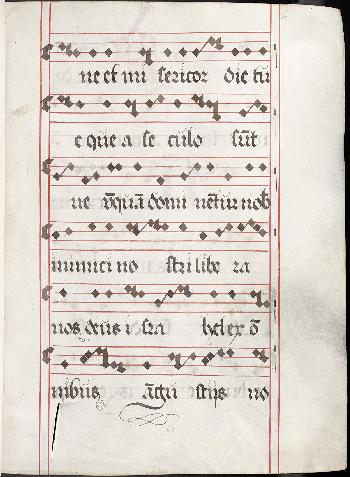 ne et mi sericor die tu
e que a se culo sūt
ne vn̄quā domi nētur nob
inimici no stri libe ra
nos deus isra hel ex ō
nibus āgu stijs no